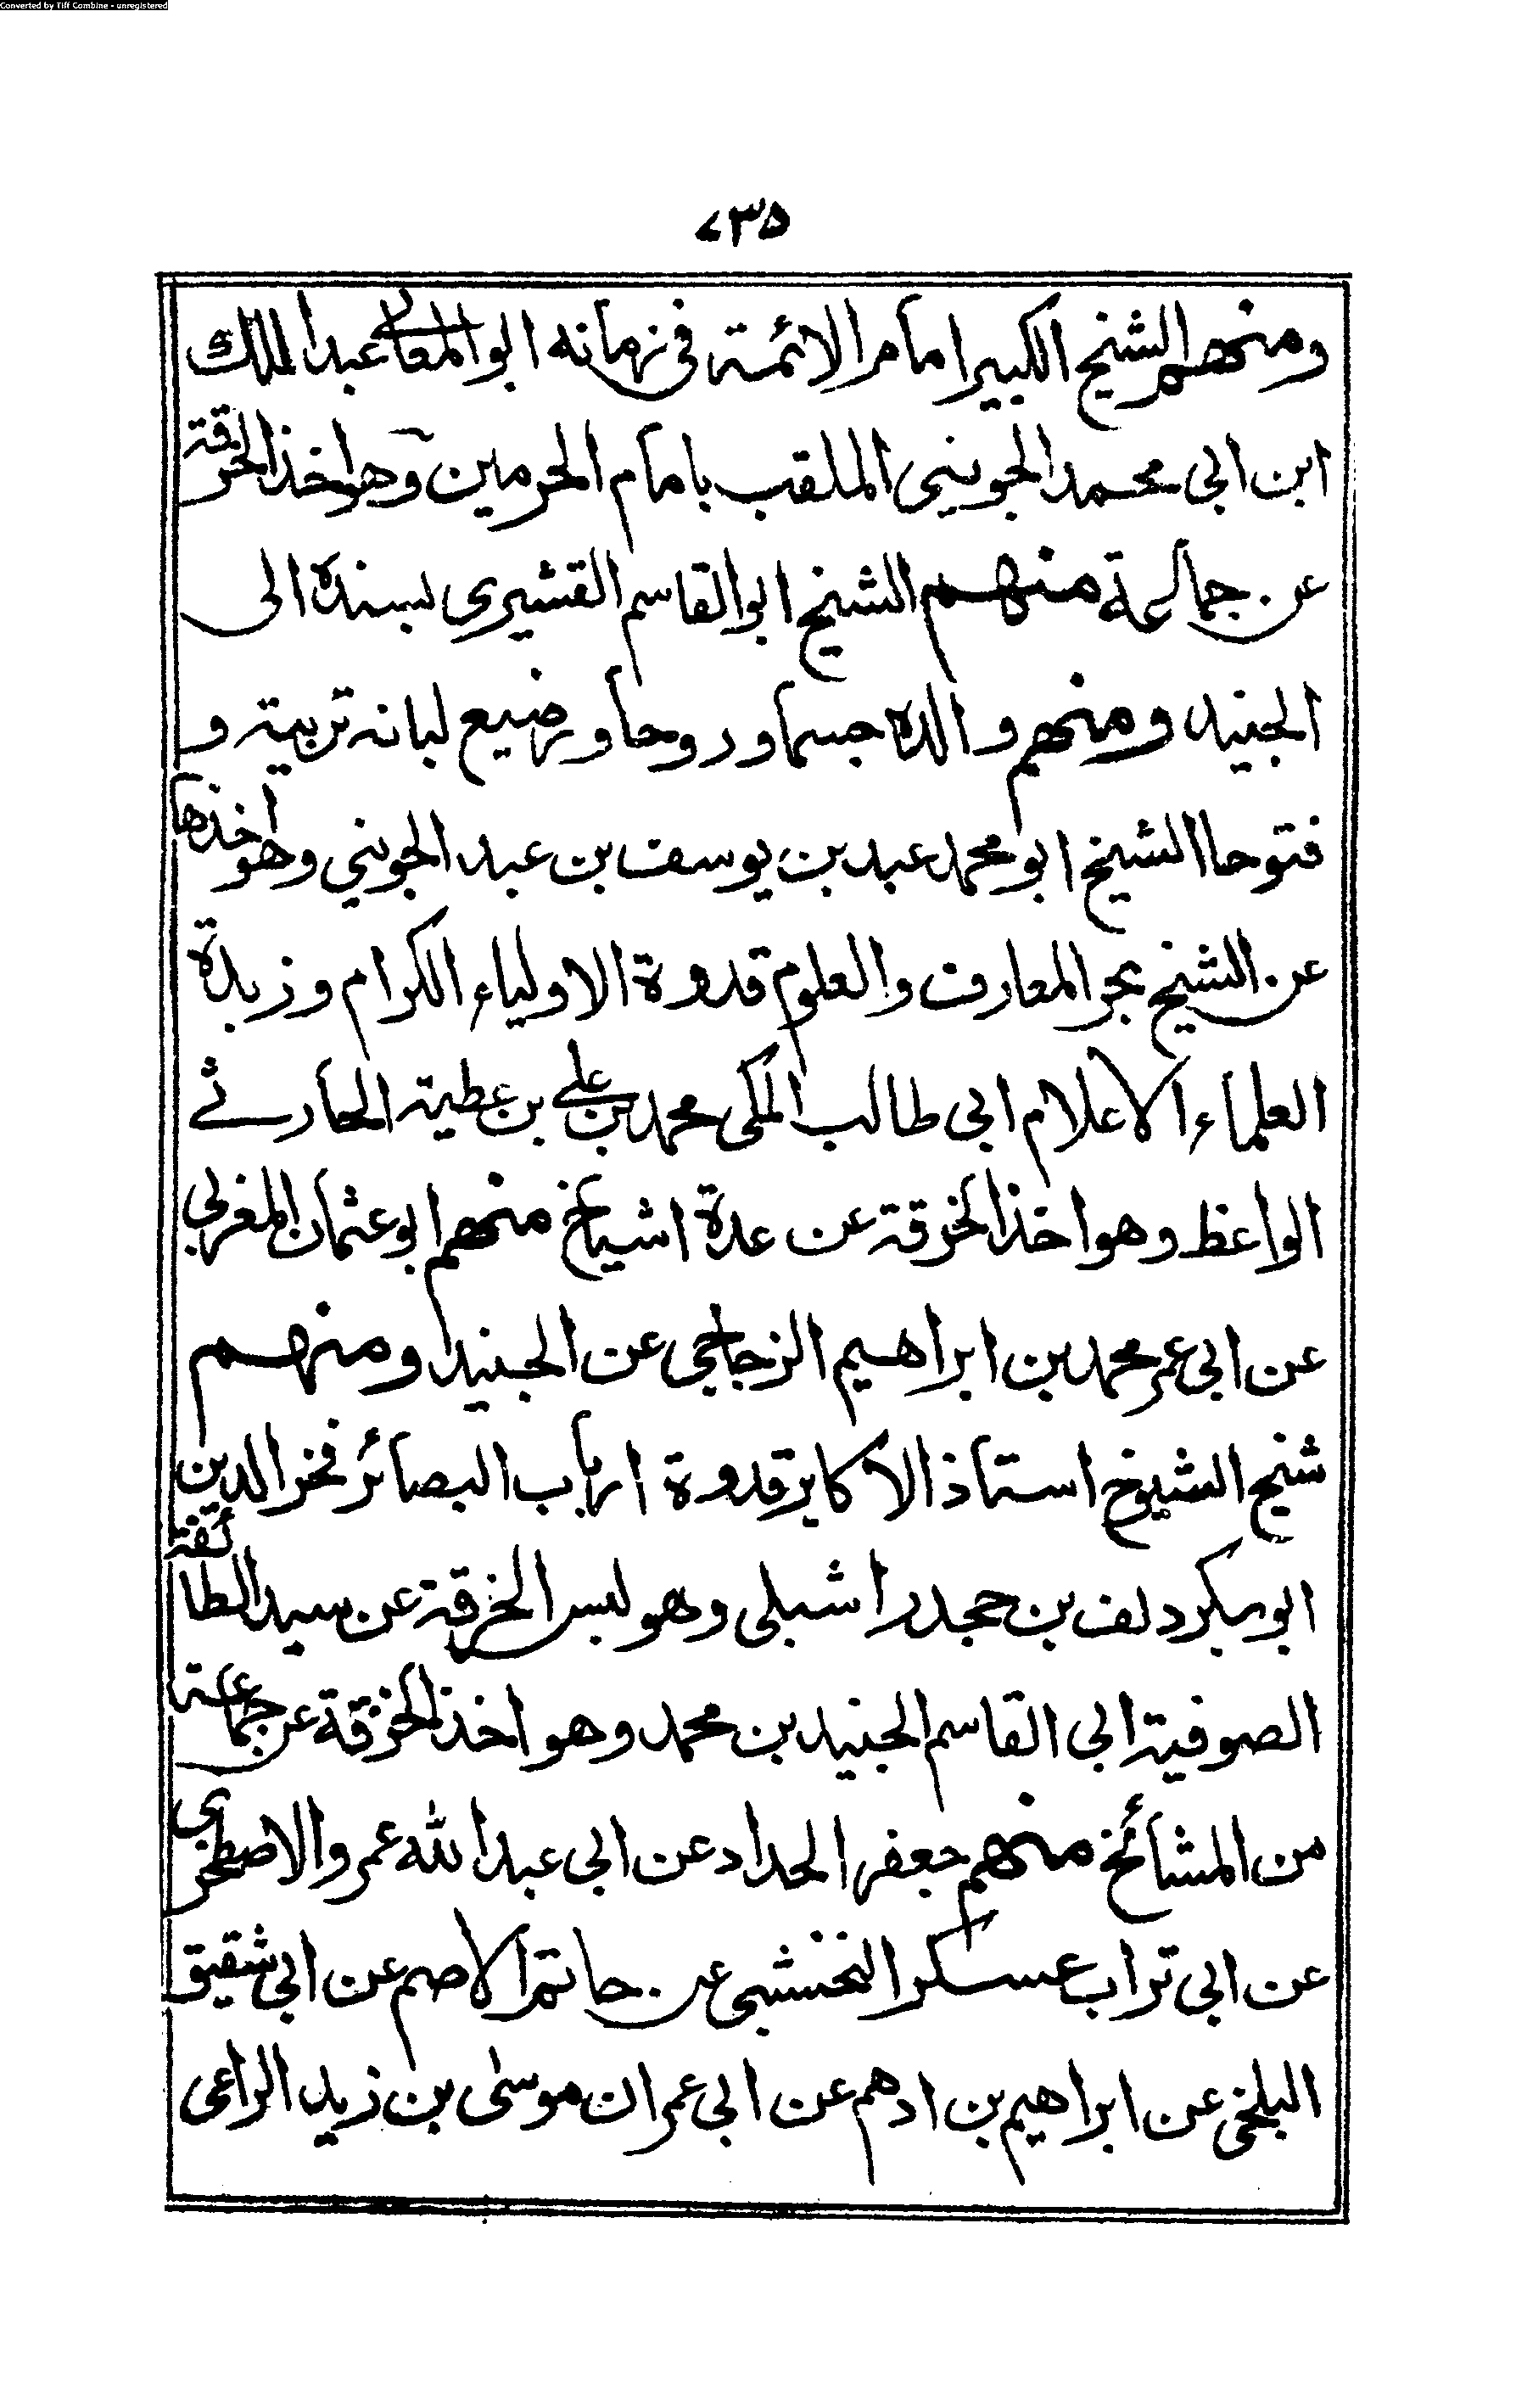 Converted by Tiff Combine - unregistered
٧٣٥
ومنهم الشيخ الكبير امام الائمة فى زمانه ابو المعالى عبد الملك
ابن ابى محمد الجوينى الملقب بامام الحرمين وهو اخذ الخرقة
عن جماعة منهم الشيخ ابو القاسم القشيرى بسنده الى
الجنيد ومنهم والده جسما وروحا ورضيع لبانه تربية و
فتوحا الشيخ ابو محمد عبد بن يوسف بن عبد الجوينى وهو اخذها
عن الشيخ بحر المعارف والعلوم قدوة الاولياء الكرام وزبدة
العلماء الاعلام ابى طالب المكى محمد بن على بن عطية الحارثى
الواعظ وهو اخذ الخرقة عن عدة اشياخ منهم ابو عثمان المغربى
عن ابى عمر محمد بن ابراهيم الزجاجى عن الجنيد ومنهم
شيخ الشيوخ استاذ الاكابر قدوة ارباب البصائر فخر الدين
ابو بكر دلف بن حجدر اشبلى وهو لبس الخرقة عن سيد الطائفة
الصوفية ابى القاسم الجنيد بن محمد وهو اخذ الخرقة عن جماعة
من المشائخ منهم جعفر الحداد عن ابى عبد الله عمرو الاصطخرى
عن ابى تراب عسكر النخشبى عن حاتم الاصم عن ابى شقيق
البلخى عن ابراهيم بن ادهم عن ابى عمران موسى بن زيد الراعى